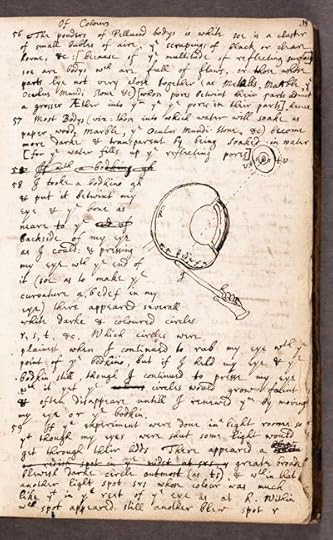 Of Colours
56 The pouders of Pellucid bodys is white soe is a cluster
of small bubles of aire, yᵉ scrapings of black or cleare
horne, &c: [because of yᵉ multitude of reflecting surfaces]
soe are bodys wᶜʰ are full of flaws, or those whose
parts lye not very close together (as Mettalls, Marble, yᵉ
Oculus Mundi Stone &c) [whose pores betwixt their parts admit
a grosser Æther into yᵐ yⁿ yᵉ pores in their parts], hence
57 Most Bodys (viz: those into which water will soake as
paper, wood, Marble, yᵉ Oculus Mundi Stone, &c) become
more darke & transparent by being soaked in water
[for yᵉ water fills up yᵉ reflecting pores]
58 I tooke a bodkine gh
& put it betwixt my
eye & yᵉ bone as
neare to yᵉ
backside of my eye
as I could: & pressing
my eye wᵗʰ yᵉ end of
it (soe as to make yᵉ
curvature a, bcdef in my
eye) there appeared severall
white darke & coloured circles
r, s, t, &c. Which circles were
plainest when I continued to rub my eye wᵗʰ yᵉ
point of yᵉ bodkine, but if I held my eye & yᵉ
bodkin still, though I continued to presse my eye
wᵗʰ it yet yᵉ circles would grow faint
& often disappeare untill I renewed yᵐ by moving
my eye or yᵉ bodkin.
59 If yᵉ experiment were done in a light roome so
yᵗ though my eyes were shut some light would
get through their lidds There appeared a
greate broade
blewish darke circle outmost (as ts) & wᵗʰin that
another light spot srs whose colour was much
like yᵗ in yᵉ rest of yᵉ eye as at k. Within
wᶜʰ spot appeared still another blew spot r